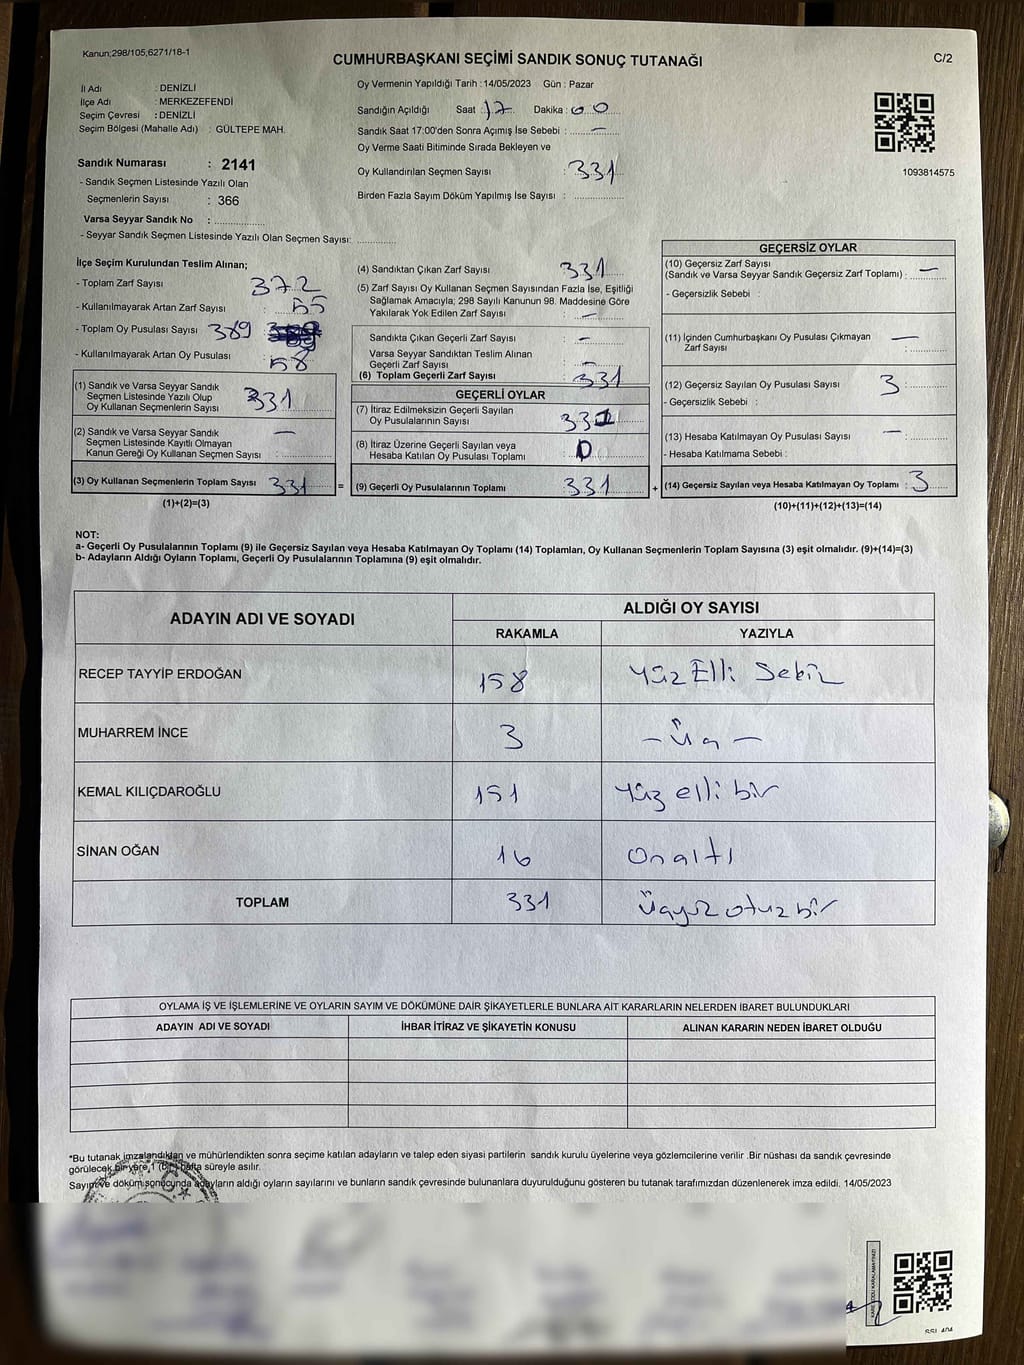 Kanun;298/105,6271/18-1
CUMHURBAŞKANI SEÇİMİ SANDIK SONUÇ TUTANAĞI
C/2
İl Adı : DENİZLİ
İlçe Adı : MERKEZEFENDİ
Seçim Çevresi : DENİZLİ
Seçim Bölgesi (Mahalle Adı) : GÜLTEPE MAH.
Sandık Numarası : 2141
- Sandık Seçmen Listesinde Yazılı Olan
Seçmenlerin Sayısı : 366
Varsa Seyyar Sandık No : ................
- Seyyar Sandık Seçmen Listesinde Yazılı Olan Seçmen Sayısı: .............
Oy Vermenin Yapıldığı Tarih : 14/05/2023 Gün : Pazar
Sandığın Açıldığı Saat : 17 Dakika : 00
Sandık Saat 17:00'den Sonra Açımış İse Sebebi : —
Oy Verme Saati Bitiminde Sırada Bekleyen ve
Oy Kullandırılan Seçmen Sayısı : 331
Birden Fazla Sayım Döküm Yapılmış İse Sayısı : ................
1093814575
İlçe Seçim Kurulundan Teslim Alınan;
- Toplam Zarf Sayısı : 372
- Kullanılmayarak Artan Zarf Sayısı : 55
- Toplam Oy Pusulası Sayısı 389
- Kullanılmayarak Artan Oy Pusulası : 58
(1) Sandık ve Varsa Seyyar Sandık
Seçmen Listesinde Yazılı Olup
Oy Kullanan Seçmenlerin Sayısı : 331
(2) Sandık ve Varsa Seyyar Sandık
Seçmen Listesinde Kayıtlı Olmayan
Kanun Gereği Oy Kullanan Seçmen Sayısı : —
(3) Oy Kullanan Seçmenlerin Toplam Sayısı : 331
(1)+(2)=(3)
(4) Sandıktan Çıkan Zarf Sayısı : 331
(5) Zarf Sayısı Oy Kullanan Seçmen Sayısından Fazla İse, Eşitliği
Sağlamak Amacıyla; 298 Sayılı Kanunun 98. Maddesine Göre
Yakılarak Yok Edilen Zarf Sayısı : —
Sandıkta Çıkan Geçerli Zarf Sayısı : —
Varsa Seyyar Sandıktan Teslim Alınan
Geçerli Zarf Sayısı : —
(6) Toplam Geçerli Zarf Sayısı : 331
GEÇERLİ OYLAR
(7) İtiraz Edilmeksizin Geçerli Sayılan
Oy Pusulalarının Sayısı : 331
(8) İtiraz Üzerine Geçerli Sayılan veya
Hesaba Katılan Oy Pusulası Toplamı : 0
= (9) Geçerli Oy Pusulalarının Toplamı : 331 +
GEÇERSİZ OYLAR
(10) Geçersiz Zarf Sayısı
(Sandık ve Varsa Seyyar Sandık Geçersiz Zarf Toplamı) : —
- Geçersizlik Sebebi :
(11) İçinden Cumhurbaşkanı Oy Pusulası Çıkmayan
Zarf Sayısı : —
(12) Geçersiz Sayılan Oy Pusulası Sayısı : 3
- Geçersizlik Sebebi :
(13) Hesaba Katılmayan Oy Pusulası Sayısı : —
- Hesaba Katılmama Sebebi :
(14) Geçersiz Sayılan veya Hesaba Katılmayan Oy Toplamı : 3
(10)+(11)+(12)+(13)=(14)
NOT:
a- Geçerli Oy Pusulalarının Toplamı (9) ile Geçersiz Sayılan veya Hesaba Katılmayan Oy Toplamı (14) Toplamları, Oy Kullanan Seçmenlerin Toplam Sayısına (3) eşit olmalıdır. (9)+(14)=(3)
b- Adayların Aldığı Oyların Toplamı, Geçerli Oy Pusulalarının Toplamına (9) eşit olmalıdır.
ADAYIN ADI VE SOYADI
ALDIĞI OY SAYISI
RAKAMLA YAZIYLA
RECEP TAYYİP ERDOĞAN 158 Yüz Elli Sekiz
MUHARREM İNCE 3 — Üç —
KEMAL KILIÇDAROĞLU 151 Yüz elli bir
SİNAN OĞAN 16 Onaltı
TOPLAM 331 Üçyüz otuz bir
OYLAMA İŞ VE İŞLEMLERİNE VE OYLARIN SAYIM VE DÖKÜMÜNE DAİR ŞİKAYETLERLE BUNLARA AİT KARARLARIN NELERDEN İBARET BULUNDUKLARI
ADAYIN ADI VE SOYADI İHBAR İTİRAZ VE ŞİKAYETİN KONUSU ALINAN KARARIN NEDEN İBARET OLDUĞU
*Bu tutanak imzalandıktan ve mühürlendikten sonra seçime katılan adayların ve talep eden siyasi partilerin sandık kurulu üyelerine veya gözlemcilerine verilir .Bir nüshası da sandık çevresinde
görülecek bir yere 1 (bir) hafta süreyle asılır.
Sayım ve döküm sonucunda adayların aldığı oyların sayılarını ve bunların sandık çevresinde bulunanlara duyurulduğunu gösteren bu tutanak tarafımızdan düzenlenerek imza edildi. 14/05/2023